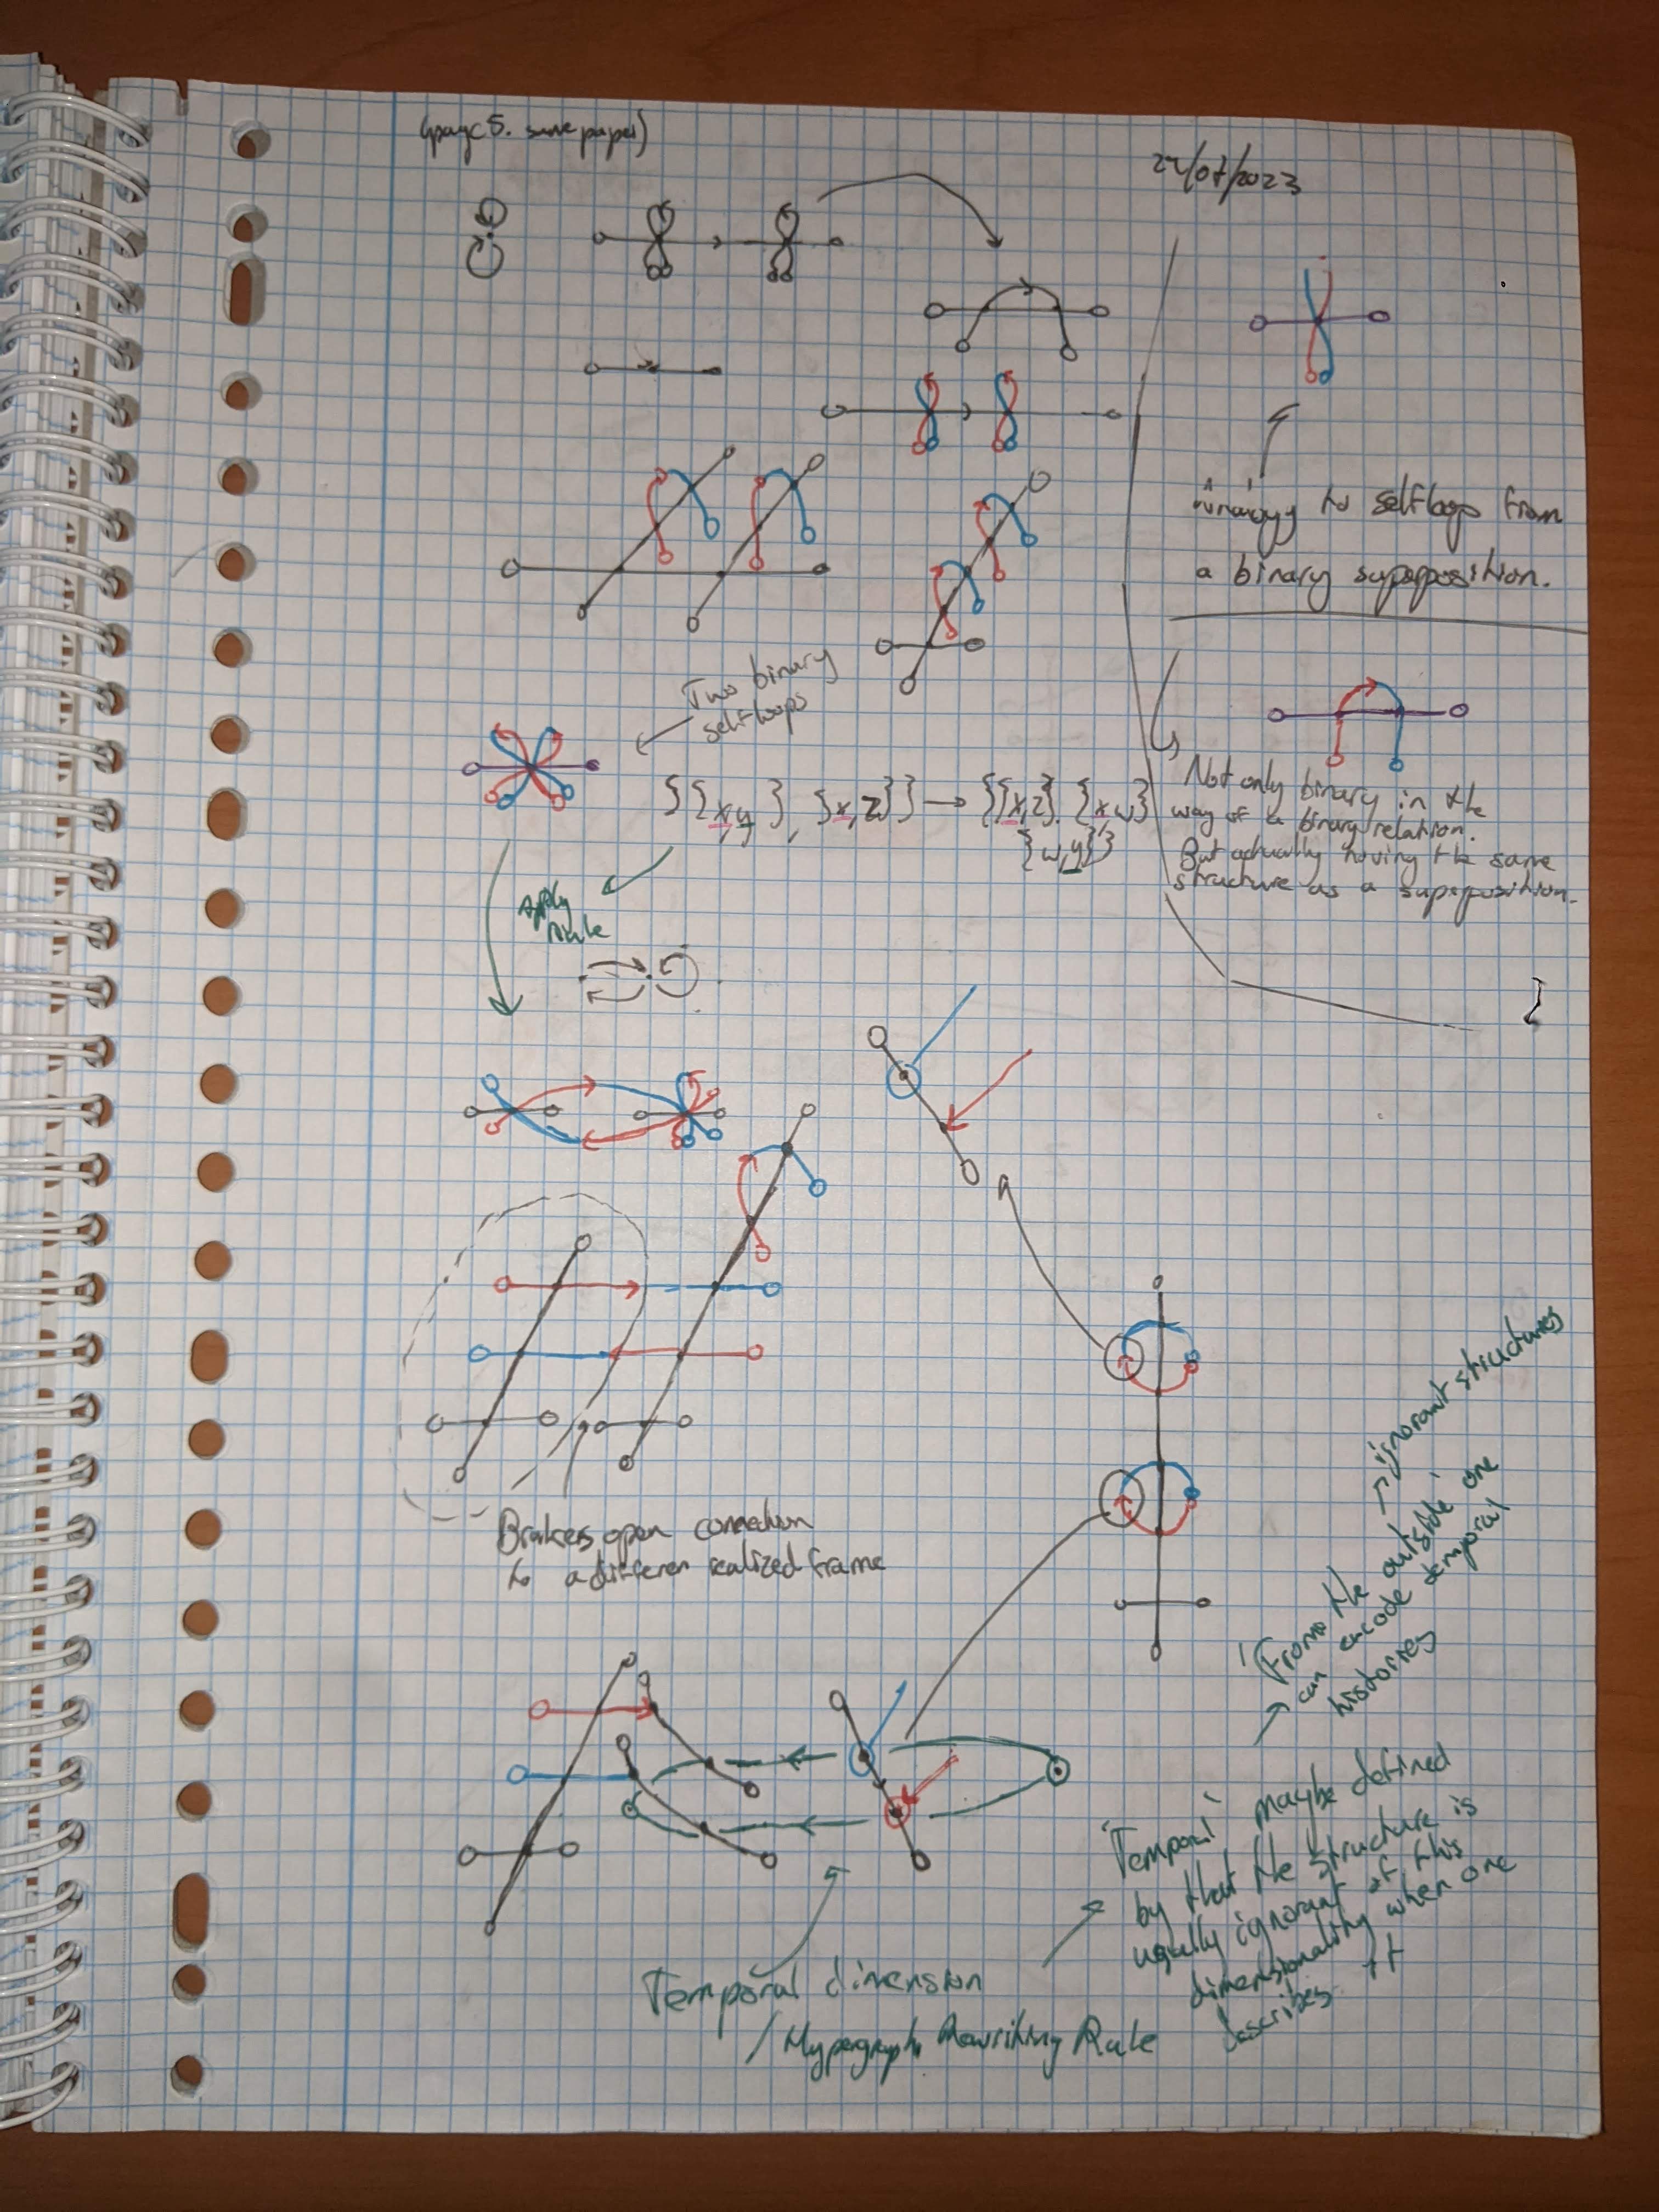 (page 5. same paper)
22/07/2023
to selfloop from
a binary superposition.
Two binary
selfloops
{{x,y}, {x,z}} → {{x,z}, {x,w}
{w,y}}
Not only binary in the
way of a binary relation.
But actually having the same
structure as a superposition.
apply
rule
open connection
to a differen realized frame
ignorant structures
'From the outside' one
can encode temporal
histories
'Temporal' maybe defined
by that the structure is
usually ignorant of this
dimensionality when one
describes it
Temporal dimension
/Hypergraph Rewriting Rule